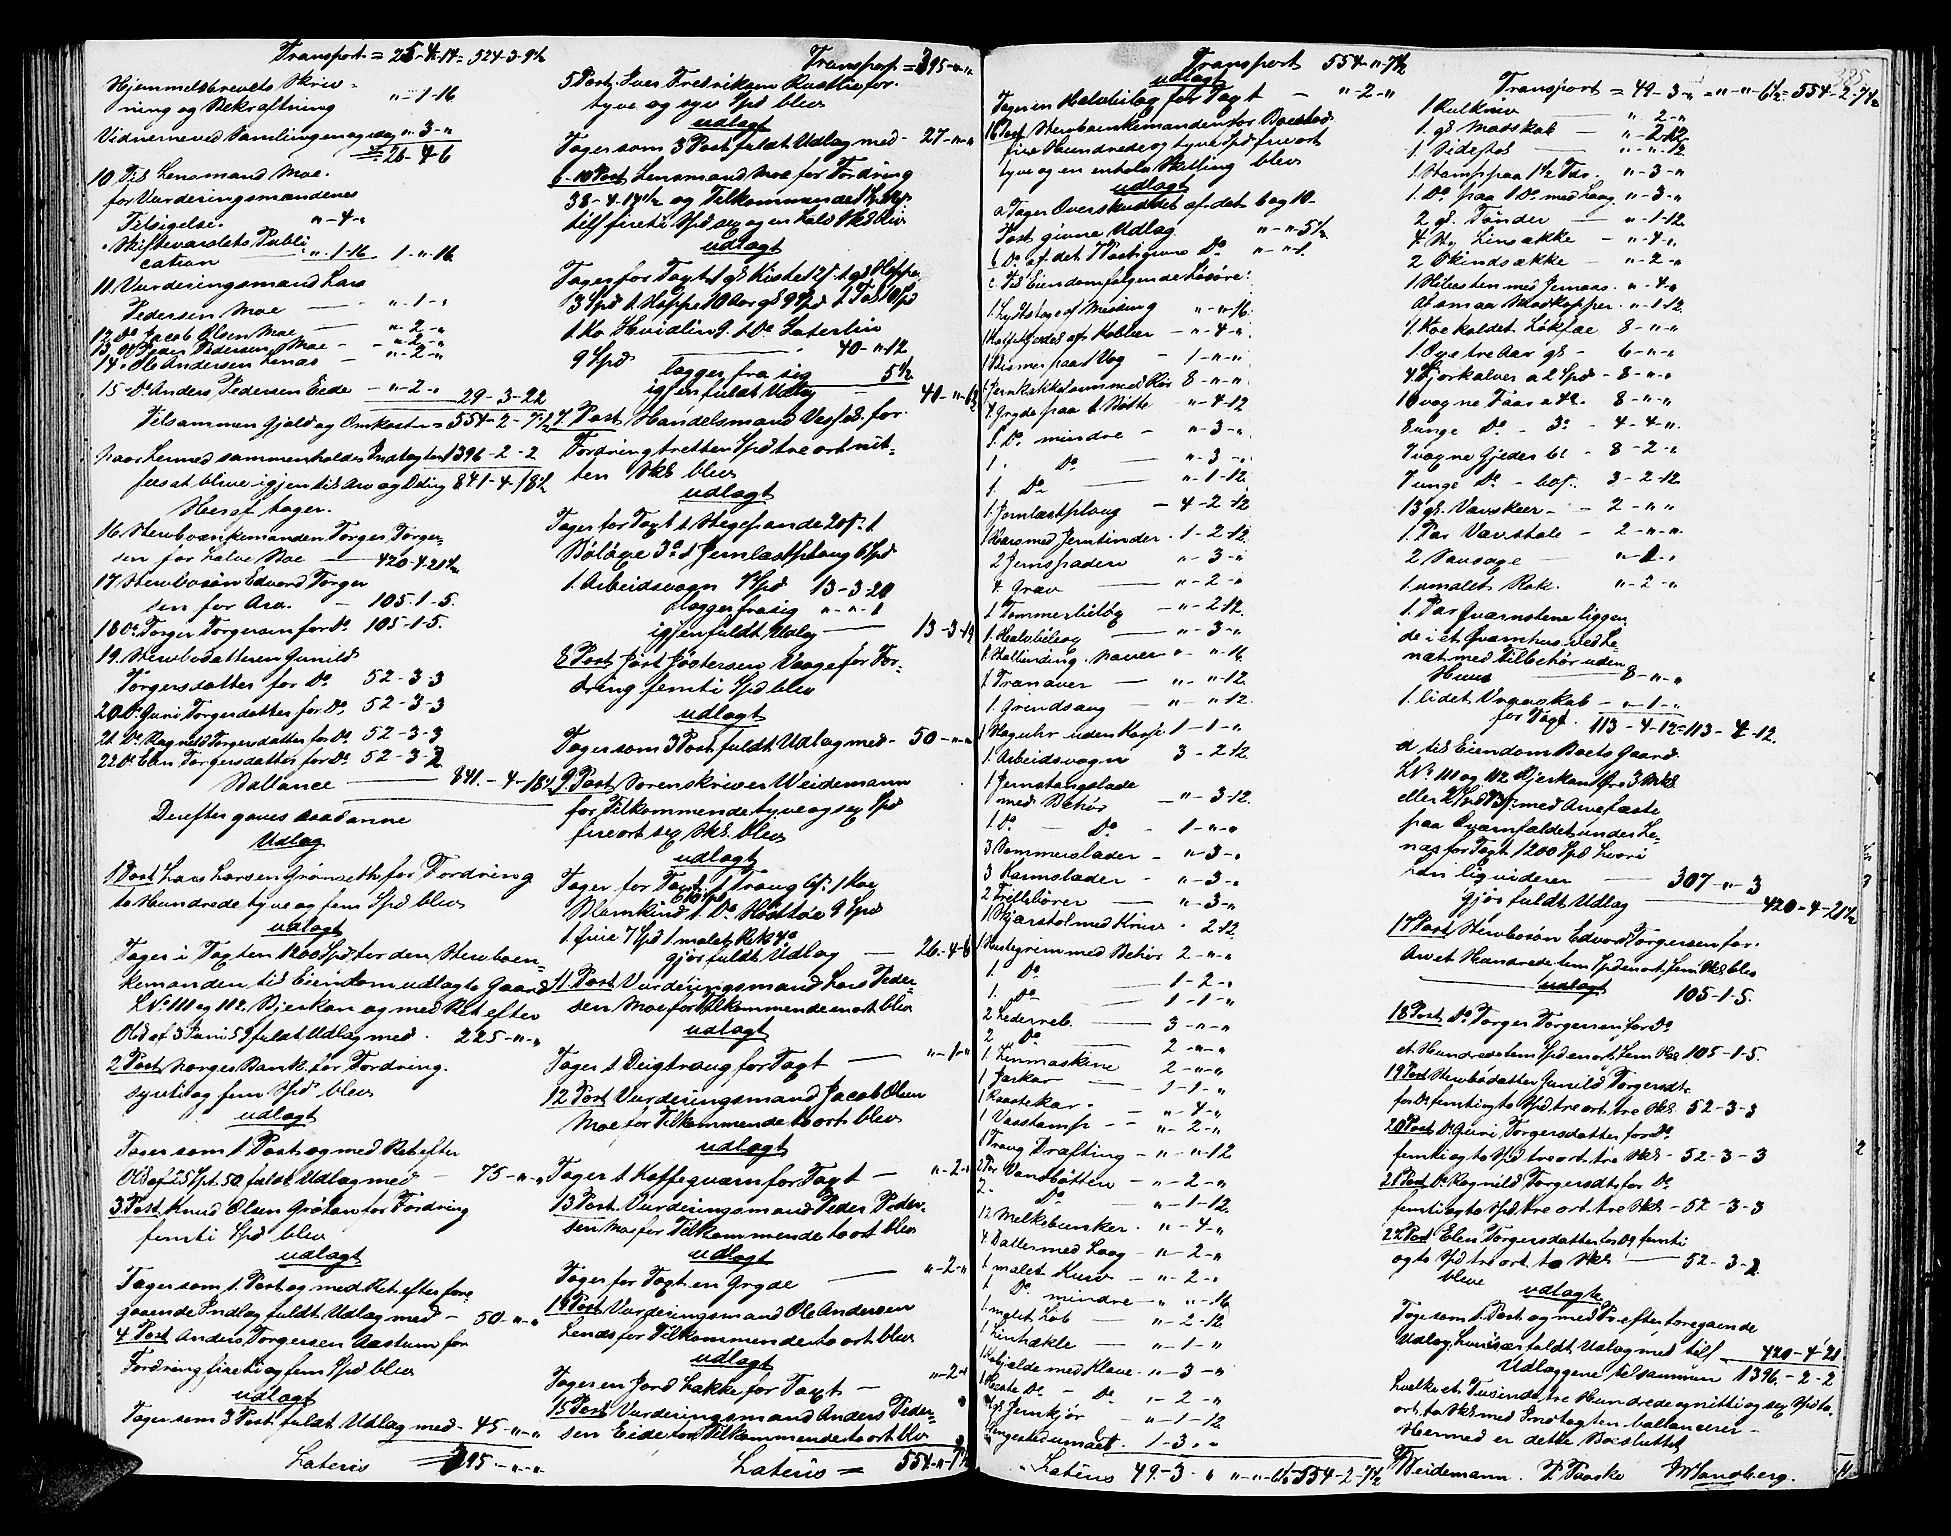 Transport = 25-4-14 = 524-3-9½
Hjemmelsbrevets Skriv-
ning og Bekræftning „-1-16
Vidnerne ved Samlingen og idag „-3-„
26-4-6
10. Til Lensmand Moe.
for Vurderingsmændenes
Tilsigelse. „-4-„
Skiftevardlets Publi-
cation „-1-16 1-„-16
11. Vurderingsmand Lars
Pedersen Moe — „-1-„
12. Do Jacob Olsen Moe — „-2-„
13. Do Peder Pedersen Moe — „-2-„
14. Ole Andersen Lenæs — „-2-„
15. Do Anders Pedersen Eide — „-2-„ 29-3-22
Tilsammen Gjæld og Omkostn = 554-2-7½
naar hermed sammenholdes Indtægten 1396-2-2
sees at blive igjen til Arv og Deling 841-4-18½
Heraf tager.
16. Stervboenkemanden Torger Torger-
sen for halve Boe — 420-4-21½
17. Stervbosøn Edvard Torger
sen for Arv. — 105-1-5.
18. Do Torger Torgersen for Do. 105-1-5.
19. Stervbodatteren Gunild
Torgersdatter for Do. 52-3-3
20. Do Guri Torgersdatter for Do. 52-3-3
21. Do Ragnild Torgersdatter for Do. 52-3-3
22. Do Elen Torgersdatter for Do. 52-3-2
Ballance — 841-4-18½
Derefter gaves saadanne
Udlæg
1 Post Lars Larsen Grønseth for Fordring
to Hundrede tyve og fem Spd blev
udlagt
Tager i Taxten 1200 Spd, for den Stervboen-
kemanden til Eiendom udlagte Gaard
L.No 111 og 112. Bjerkan og med Ret efter
Obl af 3 Juni 59 fuldt Udlæg med. 225-„-„
2 Post Norges Bank for Fordring.
sytti og fem Spd blev
udlagt
Tager som 1 Post og med Ret efter
Obl af 25 Spt. 50 fuldt Udlæg med — 75-„-„
3 Post Knud Olsen Grøtan for Fordring
femti Spd blev
udlagt
Tager som 1. Post og med Ret efter fore-
gaaende Indlæg fuldt Udlæg med — 50-„-„
4 Post Anders Torgersen Aastum for
Fordring firti og fem Spd blev
udlagt
Tager som 3 Post fuldt Udlæg med — 45-„-„
Lateris 395-„-„
Transport = 395-„-„
5 Post, Iver Fredriksen for
tyve og syv Spd blev
udlagt
Tager som 3 Post fuldt Udlæg med — 27-„-„
6-10 Post Lensmand Moe for Fordring
38-4-14½ og Tilkommende
till firti Spd og en halv Skil blev
udlagt
Tager for Taxt 1 gl Kiste 12s. 1 gl Hoppe
13 Spd 1 Hoppe 10 Aar gl 9 Spd 1 Do 8 Spd
1 Ko Hvidlin 9. 1 Do Laterlin
9 Spd 40-„-12
lagger fra sig 5½
igjen fuldt Udlæg — 40-„-6½
7 Post, Handelsmand Vessel for
Fordring tretten Spd tre ort nit-
ten Skl blev
udlagt
Tager for Taxt 1 Stegepande 20s. 1
Boløxe 3o 1 Jernlastploug 6 Spd
1. Arbeidsvogn 7 Spd 13-3-20
lagger fra sig „-„-1
igjen fuldt Udlæg — 13-3-19
8 Post Jørt Jøstersen Vaage for For-
dring femti Spd blev
udlagt
Tager som 3 Post fuldt Udlæg med — 50-„-„
9 Post Sorenskriver Weidemann
for Tilkommende tyve og sex Spd
fire ort sex Skl. blev
udlagt
Tager for Taxt. 1 Traug 6s. 1 Koe
Blomkind 1. Do Høstløe 9 Spd
1 qvie 7 Spd 1 malet Rok 4o
gjør fuldt Udlæg — 26-4-6
11. Post Vurderingsmand Lars Peder-
sen Moe for Tilkommende en ort blev
udlagt
Tager 1 Deigtraug for Taxt — „-1-„
12 Post Vurderingsmand Jacob Olsen
Moe for Tilkommende to ort blev
udlagt
Tager 1 Kaffeqværn for Taxt — „-2-„
13 Post Vurderingsmand Peder Peder-
sen Moe for Tilkommende to ort blev
udlagt
Tager for Taxt en Gryde — „-2-„
14 Post Vurderingsmand Ole Andersen
Lenæs for Tilkommende to ort blev
udlagt
Tager en Jord hakke for Taxt — „-2-„
15 Post Vurderingsmand Anders Peder-
sen Eide for Tilkommende to ort blev
Lateris = 554-„-7½
Transport 554-„-7½
udlagt
Tager en Halvbilæg for Taxt — „-2-„
16 Post Stervboenkemanden for Boeslod
fire Hundrede og tyve Spd fire ort
tyve og en enhalv Skilling blev
udlagt
a Tager Overskuddet af det 6 og 10
Post givne Udlæg „-„-5½
b Do. af det 7 Post givne Do. „-„-1.
c. Til Eiendom følgende Løsøre:
1 Lysestage af Messing „-„-16.
1 Kaffekjedel af Kobber — „-4-„
1 Bismer paa 1 Vog — 1-„-„
1 Jernkakkelovn med Rør 8-„-„
1. Gryde paa ½ Bøtte — „-4-12
1. Do. mindre — „-3-„
1. Do. — „-3-„
1. Do — „-1-12.
1. Jernlastploug — 4-2-12
1 Harv med Jerntinder. 1-2-12.
2 Jernspader — „-3-„
4. Græv — „-2-„
1 Tømmerbiløg — „-2-12.
1. Halvbileg — „-3-„
1. Hallinding. naver „-„-16.
1. Tranaver — „-„-12.
1. Grindsaug — „-„-12
1 Stueuhr uden Kasse 1-1-„
1. Arbeidsvogn 3-2-12.
1 Jernstangslade
med Behør — „-3-12.
1. Do. — Do. 1-„-„
3 Tømmerslader — „-3-„
3 Karmslader — „-3-„
2 Trillebører — „-3-„
1 Kjærstol med Kurv. „ 2-12.
1 Hestegrime med Behør 2-„-„
1. Do — 1-2-„
1. Do — 1-1-„
2 Lederreb. — 3-„-„
2 Do — 2-„-„
1. Linmaskine 2-„-„
1 Jærkar — 1-1-„
1 Raastekar — „-4-„
1 Vasstamp — „-2-„
1 Traug Drafting — „-„-12
2 Par Vandbøtten — „-2-„
2- Do. — „-1-12
12 Melkebunker. — „-4-„
4. Baller med Laag — „-2-„
1 malet Kurv — „-2-„
1 Do. mindre — „-„-16
1. malet Løb — „-2-12
1. Linhækle — „-1-„
1. Kobjelde med Klave — „-3-„
1 Heste Do. — Do. — „-2-„
1 gl. Jernkjør — „-1-12
1 Sengested umalet. 1-3-„
Lateris 49-3-„ „-„-6½ = 554-2-7½
385
Transport = 49-3-„ = „-„-6½ = 554-2-7½
1 Rulkniv — „-2-„
1. gl. Matskab — „-2-12
1. Sidefas — „-„-12.
1. Stamp paa 1½ Tdr. „-3-„
1. Do. paa 1 Do. med Laag „-3-„
2 gl. Tønder — „-1-12.
4. St. Linsække — „-4-„
2 Skindsække — „-2-„
„-4-„
„-1-12.
1. Koe kaldet Løkfae 8-„-„
1. Oxe tre Aar gl — 6-„-„
4. Bjørkalver a 2 Spd — 8-„-„
10 voxne Faar a 4o. 8-„-„
8 unge Do. — 3o — 4-4-„
7 voxne Gjeder 6o — 8-2-„
7 unge Do. — 3-2-12.
13 gl. Vævskeer — 2-„-„
1. Par Vævstole — 2-„-„
2 Saugæ — „-1-„
1 umalet Rok. „-2-„
1. Par Qværnstene liggen
de i et Qværnhus ved Le-
næs med Tilbehør uden
Huus — 8-„-„
1. lidet Vægskab — „-1-„
for Taxt. 113-4-12 = 113-4-12.
d til Eiendom Boets Gaard
L.No 111 og 112 Bjerkan Øre 3 Mkl
eller 2½ Spd 13s. med Arvefæste
paa Qværnfaldet under Le-
næs for Taxt 1200 Spd hvori
han liqviderer — 307-„-3
gjør fuldt Udlæg — 420-4-21½
17 Post, Stervbosøn Edvard Torgersen for.
Arv et Hundrede fem Spd en ort, fem Skl blev
udlagt 105-1-5.
18 Post, Do Torger Torgersen for Do
et Hundrede fem Spd en ort fem Skl 105-1-5.
19 Post Stervbodatter Gunild Torgersdt.
for Do femti og to Spd. tre ort, tre Skl. 52-3-3
20 Post Do Guri, Torgersdatter for Do.
femti og to Spd tre ort. tre Skl — 52-3-3
21 Post Do Ragnild Torgersdt, for Do.
femti og to Spd. tre ort. tre Skl — 52-3-3
22 Post Elen Torgersdatter for Do femti
og to Spd tre ort to Skl — 52-3-2
bleve
udlagte
Tage som 1. Post og med Pr. efter foregaaende
Udlæg hveriser fuldt Udlæg med till 420-4-21
Udlæggene tilsammen 1396-2-2
hvilket et Tusende tre Hundrede og nitti og sex Spd to
ort to Skl med Indtægten balancerer —
Hermed er dette Boe sluttet
Weidemann. P. Paaske M Sandberg.